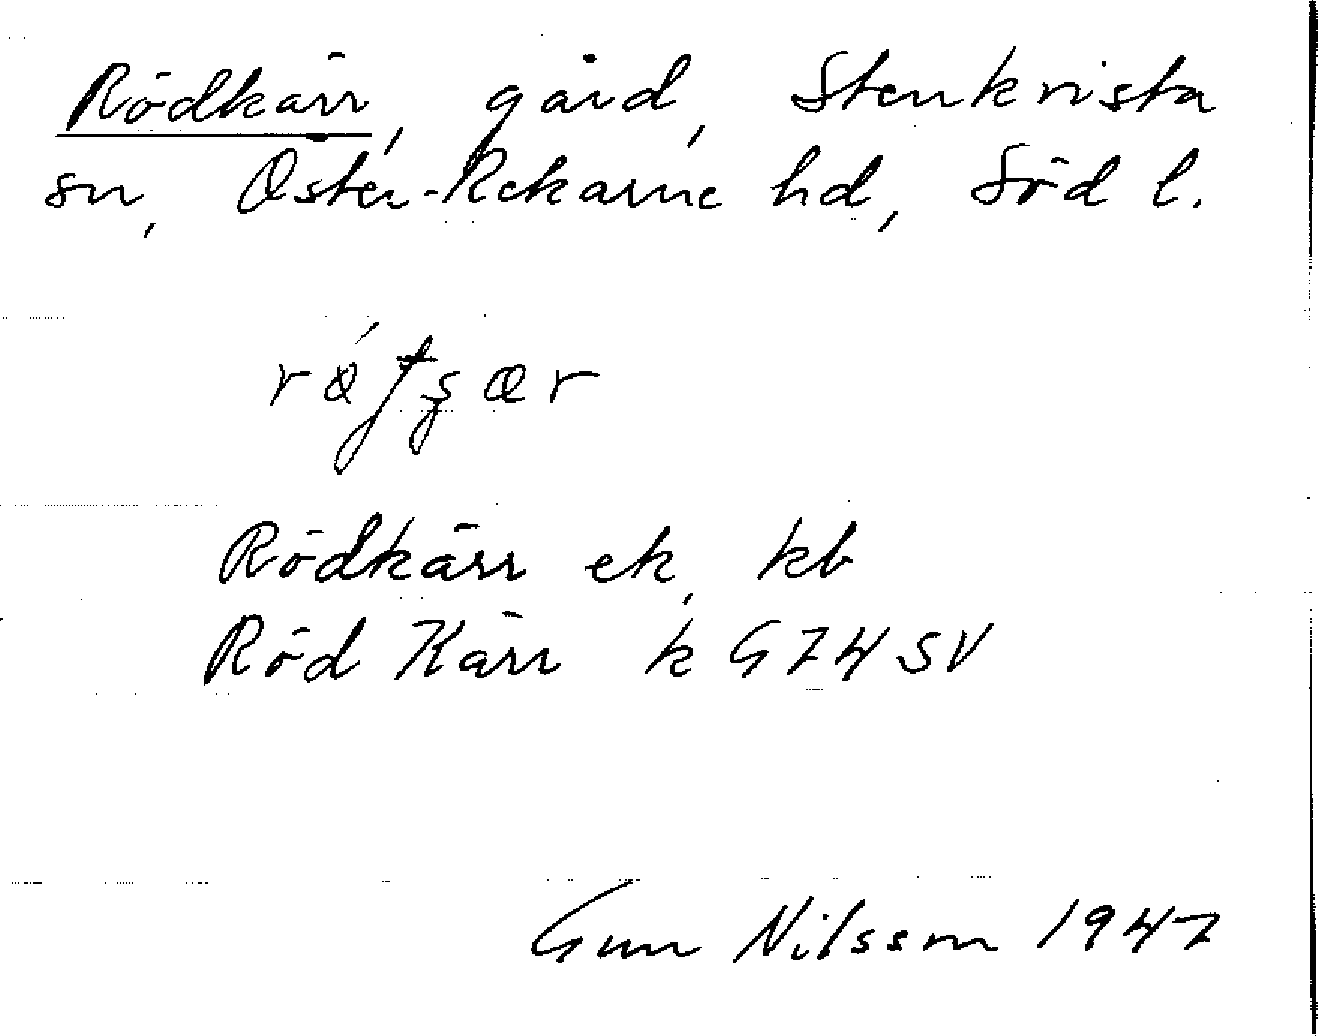 Rödkärr, gård, Stenkvista
sn, Öster-Rekarne hd, Söd l.
Rödkärr ek, kb
Röd Kärr k G74SV
Gun Nilsson 1947